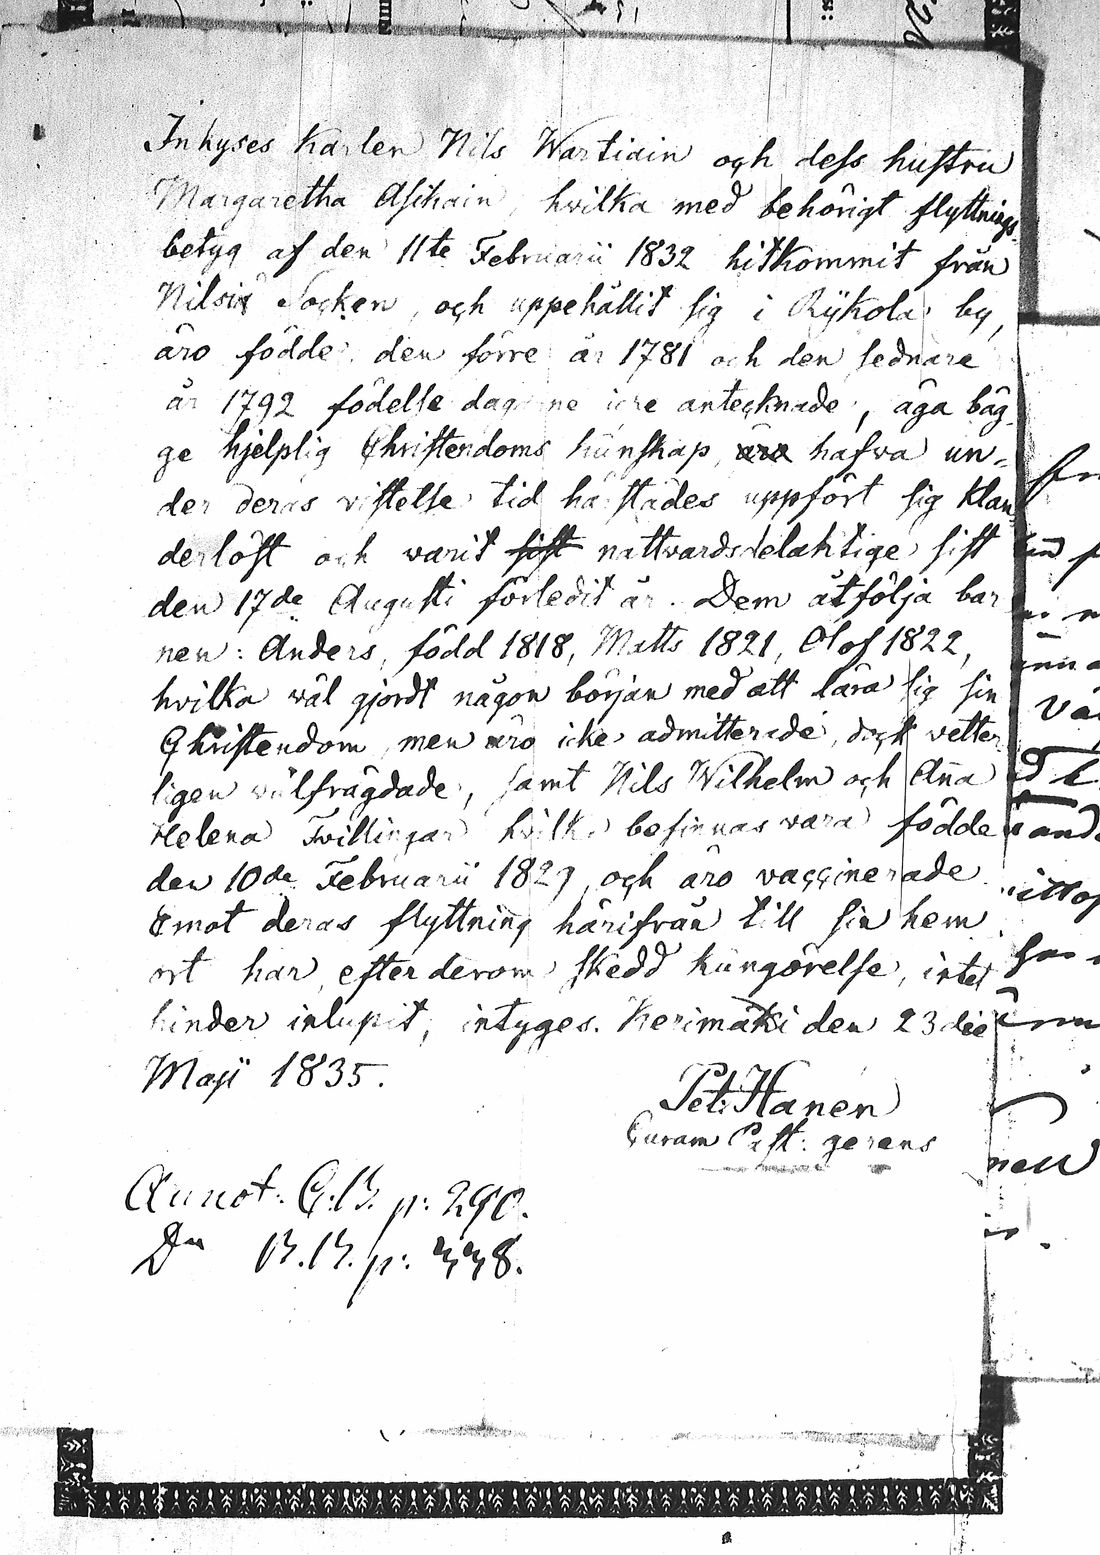 Inhyses Karlen Nils Wartiain och dess hustru
Margaretha Asikain, hvilka med behörigt flyttnings-
betyg af den 11te Februarii 1832 hitkommit från
Nilsiä Socken, och uppehållit sig i Rÿkola by,
äro födde, den förre år 1781 och den sednare
år 1792 födelse dagarne icke antecknade, äga båg-
ge hjelplig Christendoms kunskap, äro hafva un-
der deras vistelse tid härstädes uppfört sig klan
derlöst och varit sist nattvardsdelaktige sist
den 17de Augusti förledit år. Dem åtfölja bar
nen: Anders, född 1818, Matts 1821, Olof 1822,
hvilka väl gjordt någon början med att lära sig sin
Christendom, men äro icke admitterade, dock vetter
ligen välfrägdade, samt Nils Wilhelm och Anna
Helena Tvillingar hvilka befinnas vara födde
den 10de Februarii 1829, och äro vaccinerade
Emot deras flyttning härifrån till sin hem
ort har, efter derom skedd kungörelse, intet
hinder inlupit, intyges. Kerimäki den 23die
Maji 1835.
Pet: Hanén
Curam Past: gerens
Annot: C.B. p: 290.
Do B.B. p: 338.